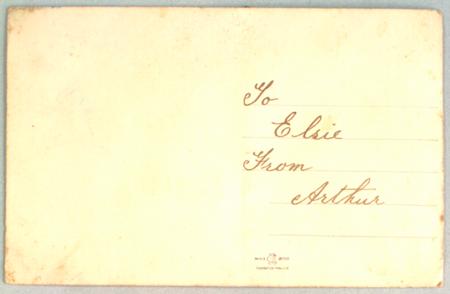 To
Elsie
From
Arthur